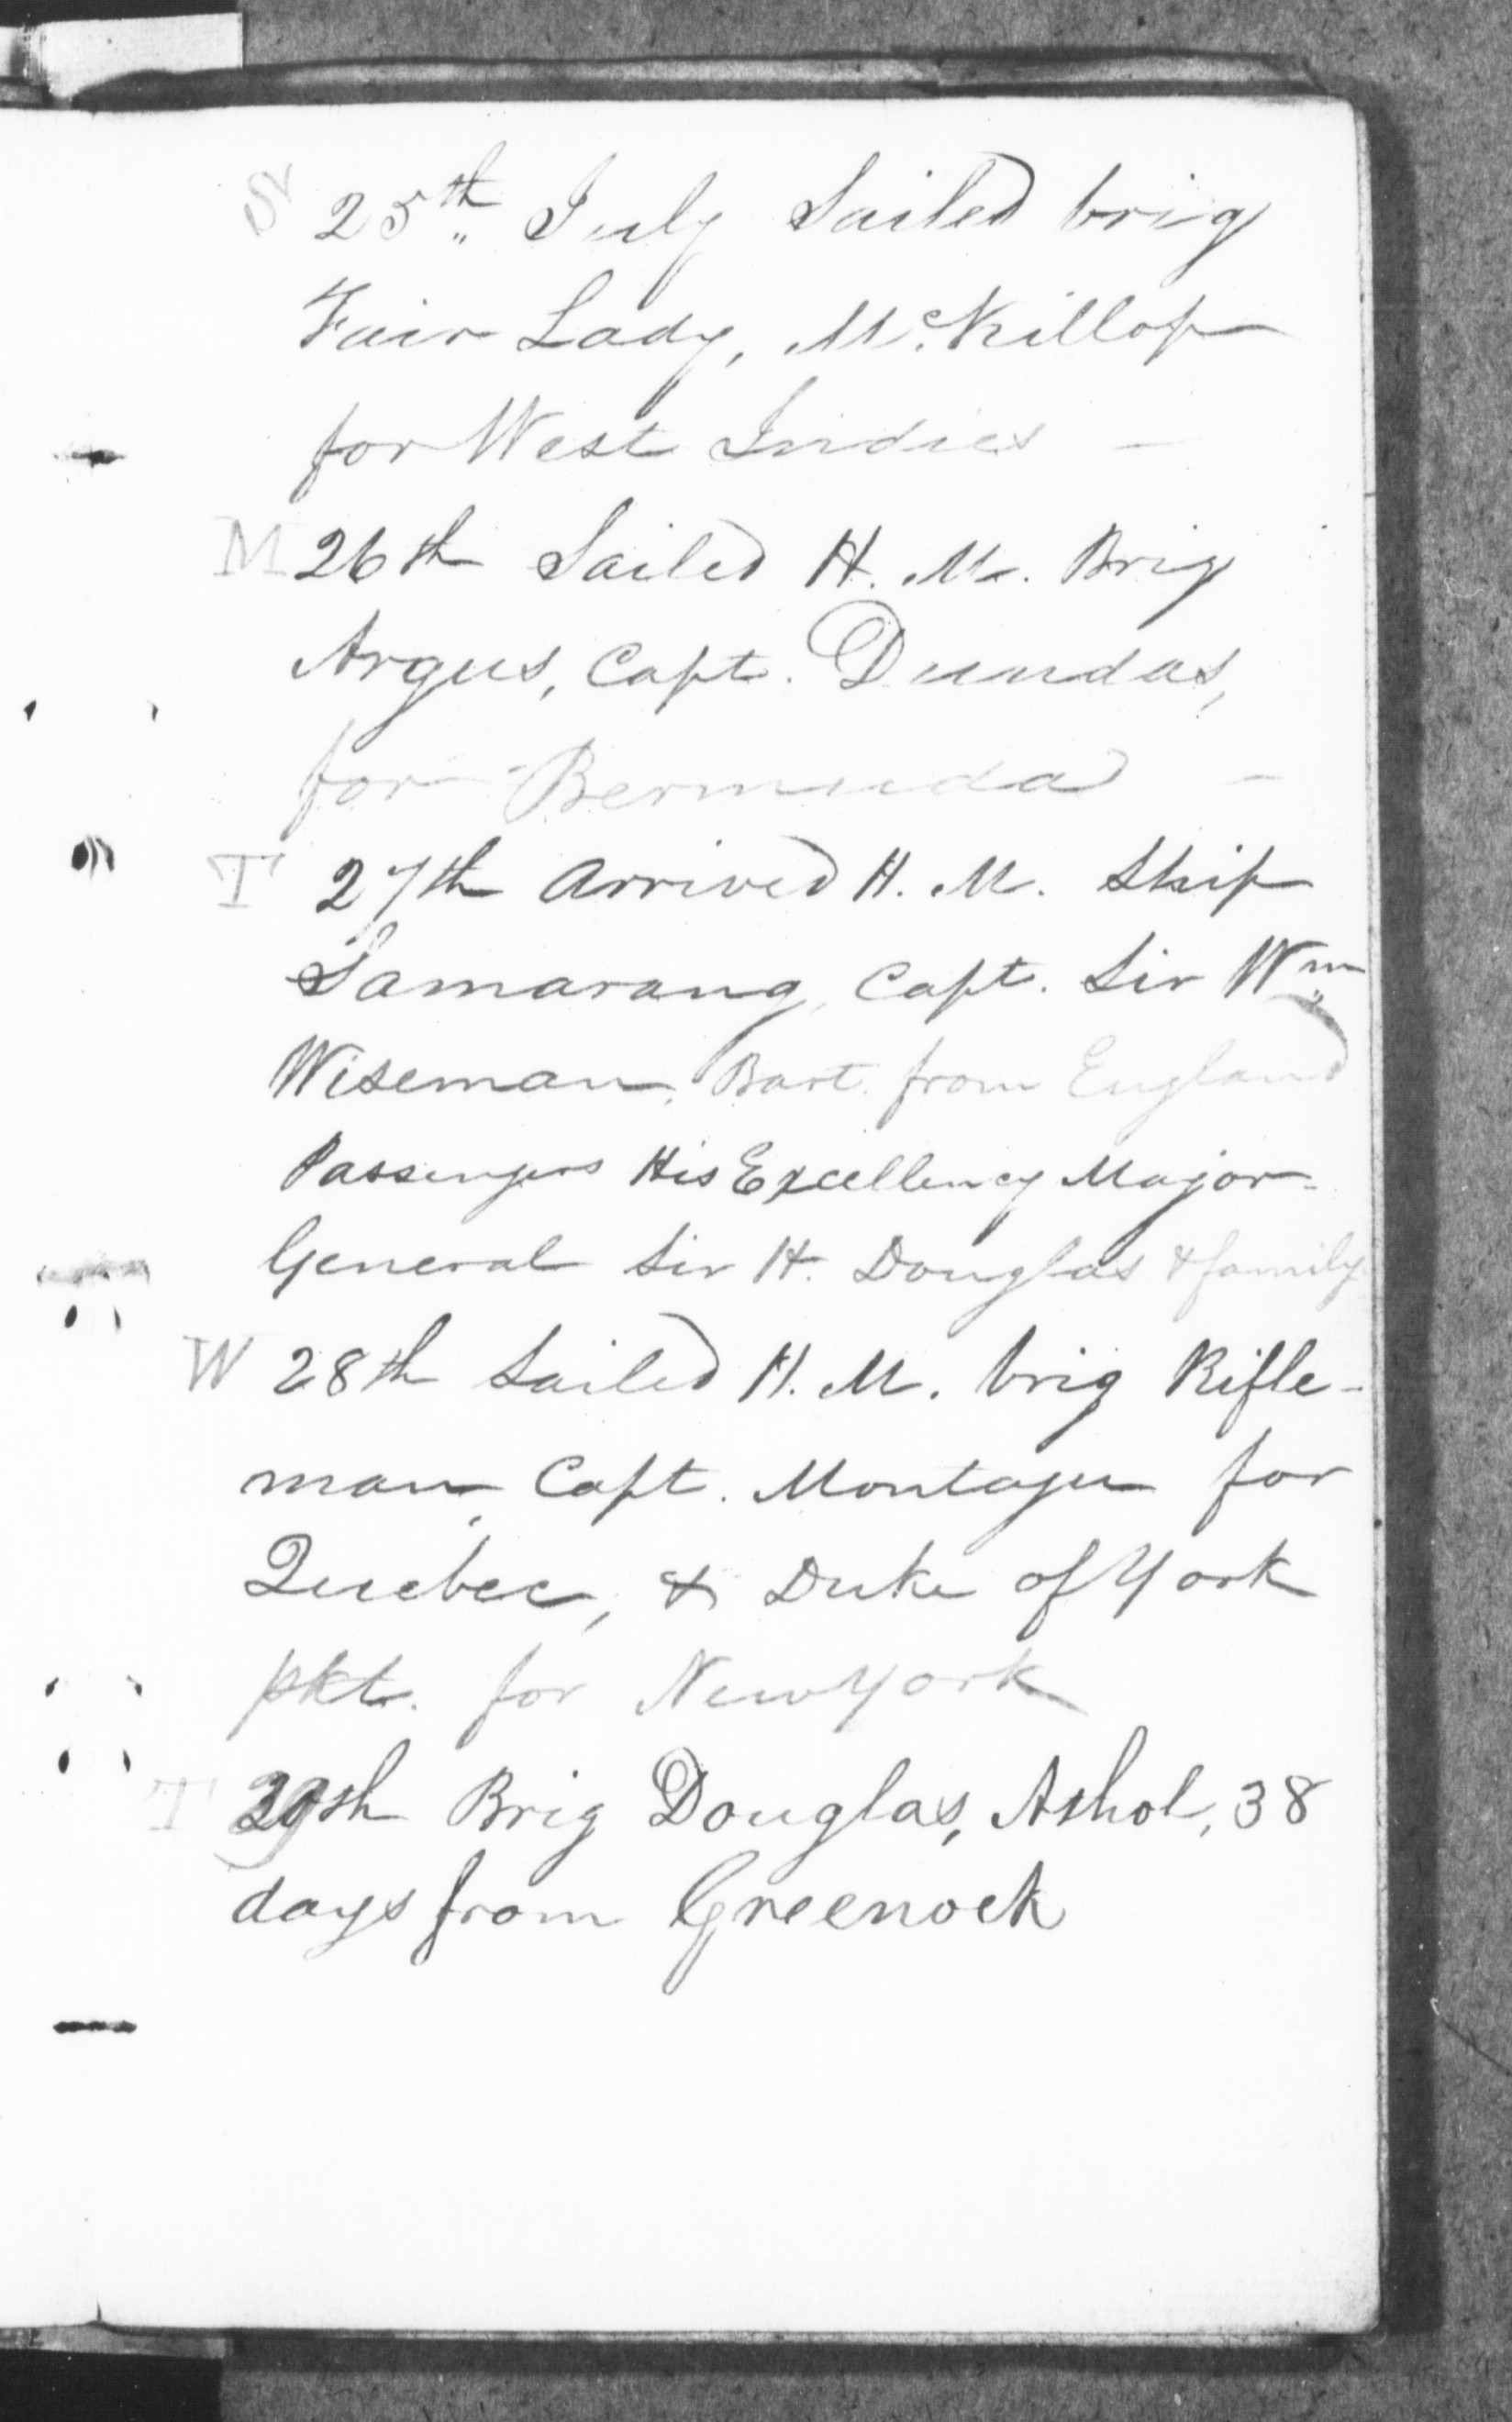 S 25th July Sailed brig
Fair Lady, McKillop
for West Indies -
M 26th Sailed H. M. Brig
Argus, Capt. Dundas,
for Bermuda -
T 27th Arrived H. M. Ship
Samarang, Capt. Sir Wm
Wiseman, Bart. from England
Passengers His Excellency Major-
General Sir H. Douglas & family
W 28th Sailed H. M. brig Rifle-
man, Capt. Montagu for
Quebec, & Duke of York
pkt. for New York
T 29th Brig Douglas, Athol, 38
days from Greenock